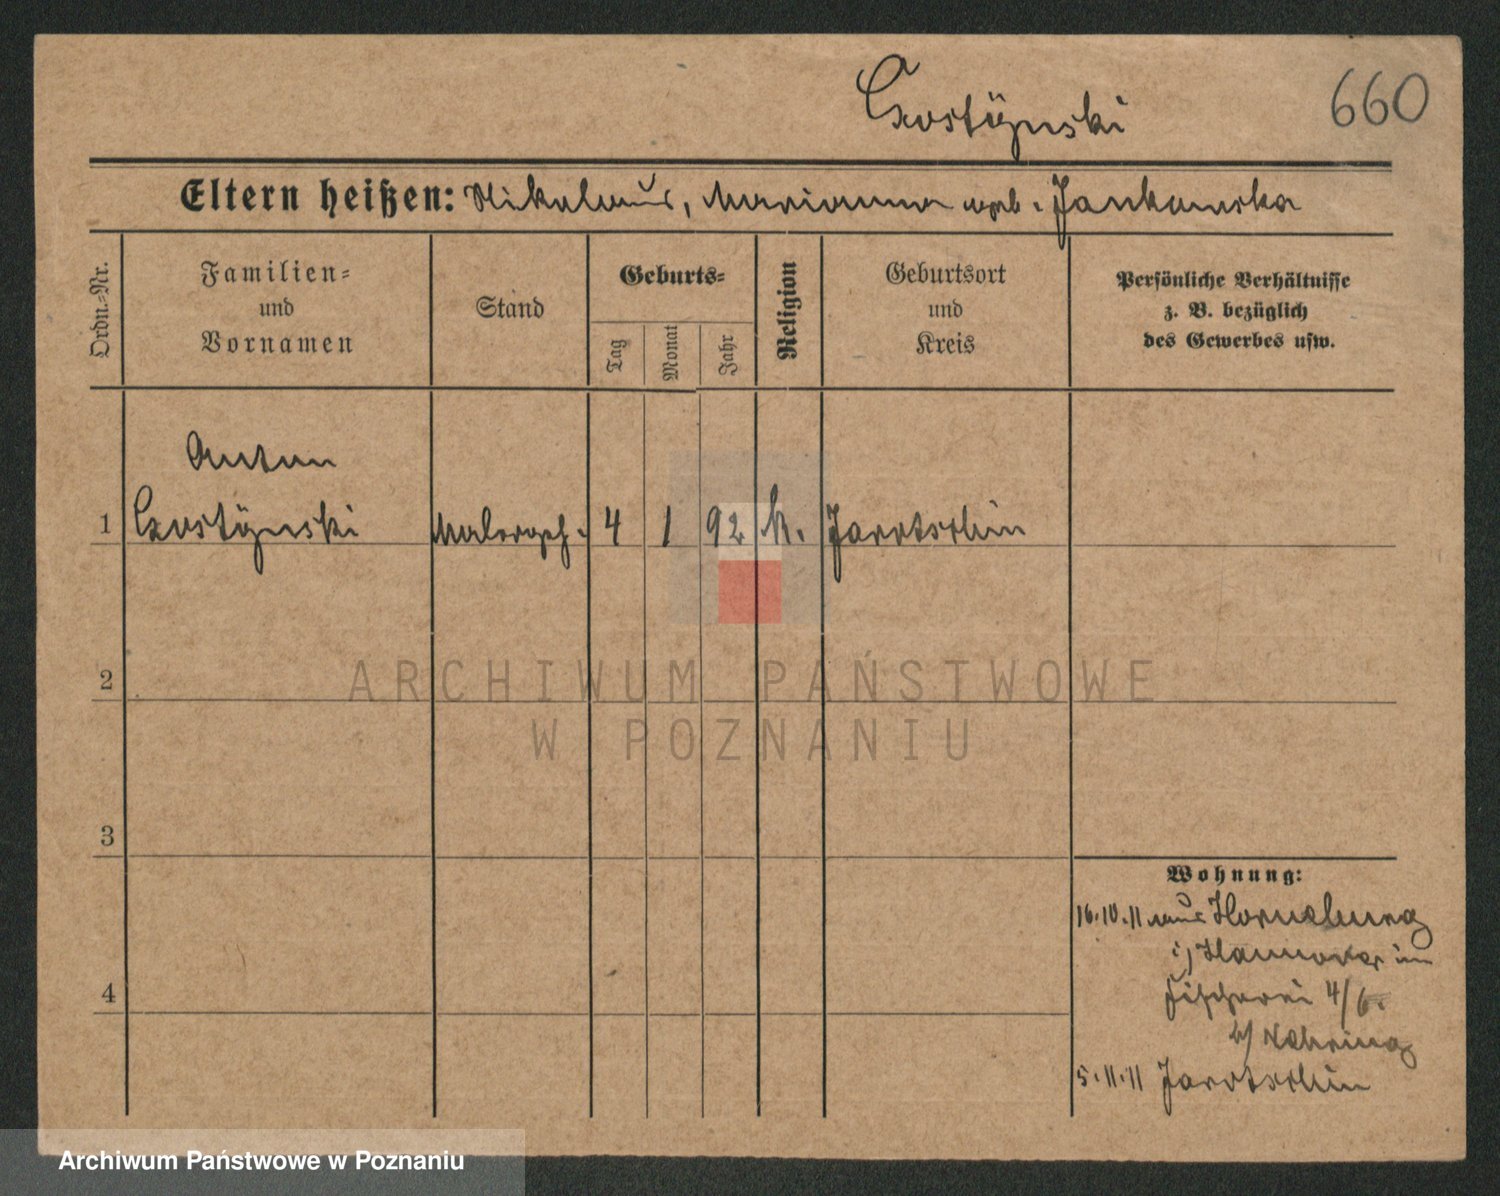 Czostÿnski
660
Eltern heißen: Nikolaus, Marianna geb. Jankowska
Ordn.-Nr.
Familien-
und
Vornamen
Stand
Geburts-
Tag
Monat
Jahr
Religion
Geburtsort
und
Kreis
Persönliche Verhältnisse
z. B. bezüglich
des Gewerbes usw.
Anton
1 Czostÿnski Malergeh. 4 1 92 k. Jarotschin
2
ARCHIWUM PAŃSTWOWE
W POZNANIU
3
Wohnung:
16.10.11 aus Horneburg
i/ Hannover in
4
Fischerei 4/6.
b/ Nehring
5.11.11 Jarotschin
Archiwum Państwowe w Poznaniu